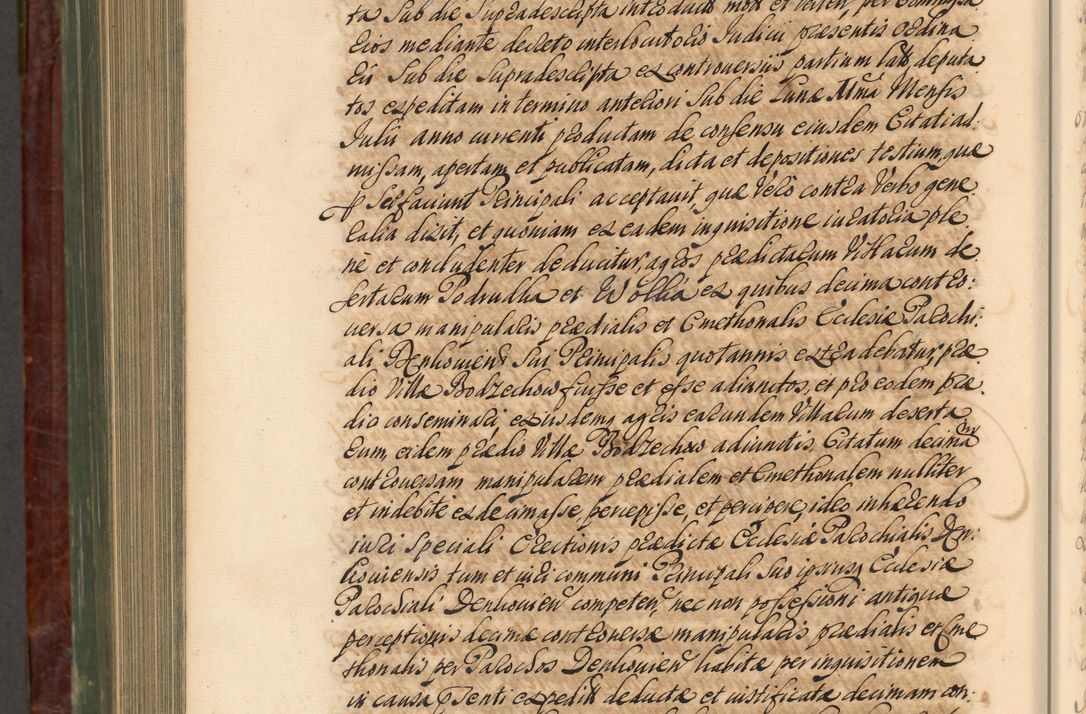 ta Sub die Supradescripta introduct mott et
Eiös mediante decreto interlocutorio Iudicii præsentis ordina
rii Sub die Supradescripta ex controversiis partium latt deputa
tos expeditam in termino anteriori Sub die Lunæ Mensis
Julii anno currenti productam de consensu eiusdem Citati ad:
missam, apertam, et publicatam, dicta et depositiones testium, quæ
Serfaciunt Principali acceptavit, quæ verò contra Verbo gene
ralia dixit, et quoniam ex eadem inquisitione iuratoria ple
ne et concludenter deducitur, agros prædictarum Villarum de
sertarum Podrudka et Wolka ex quibus decima contro:
versa manipularis prædialis et Cmethonalis Ecclesiæ Parochi
ali Denkovien Sui Principalis quotannis extradebatur, præ
dio Villæ Bodzechow fuisse et esse adiunctos, et pro eodem præ
dio conseminari, ex eiusdemq agris earundem Villarum deserta
rum eidem prædio Villæ Bodzechow adiunctis, Citatum decimā
controversam manipularem prædialem et Cmethonalem nulliter
et indebite exdecimasse, percepisse, et percipere, ideo inhærendo
iuri Speciali Erectionis prædictæ Ecclesiæ Parochialis Den:
koviensis tum et iuri communi Principali Suo ipsiusq Ecclesiæ
Parochiali Denkovien competen, nec non possessioni antiquæ
perceptionis decimæ controversæ manipularis prædialis et Cme
thonalis per Parochos Denkovien habitæ per inquisitionem
in causa pnti expeditt deductæ et iustificatæ decimam con: